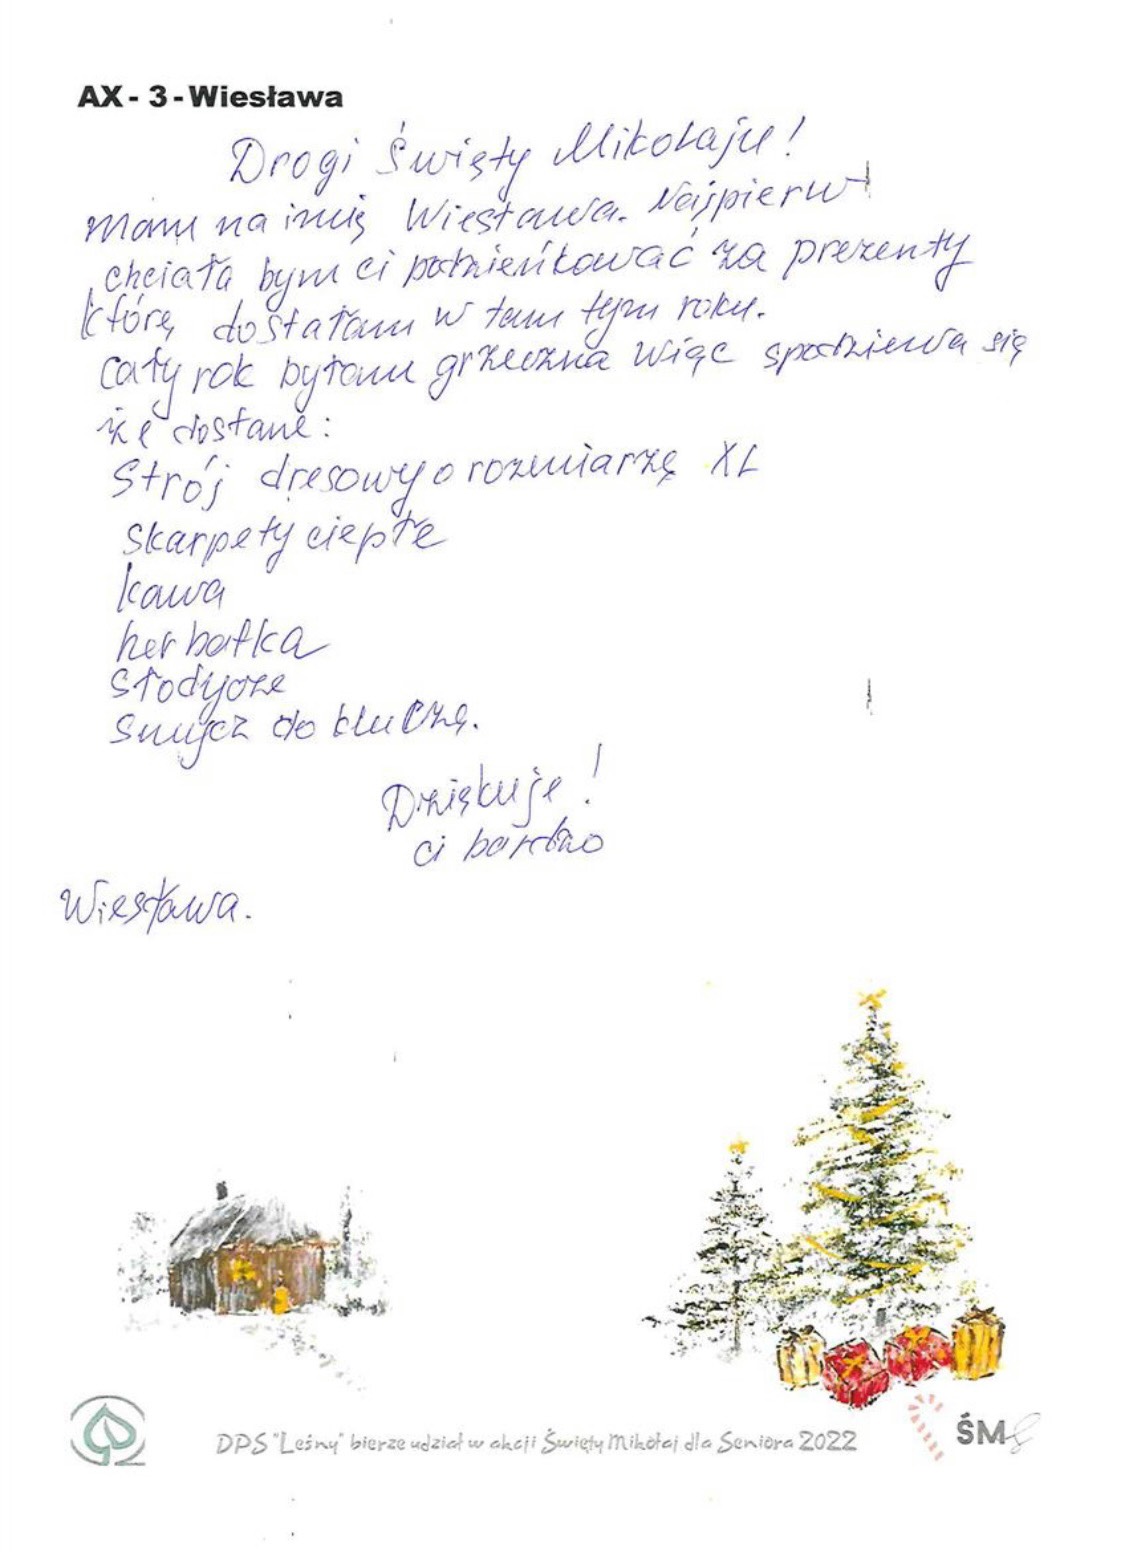 AX - 3 - Wiesława
Drogi Święty Mikołaju!
mam na imię Wiesława. Najpierw
chciała bym ci podzieńkować za prezenty
którę dostałam w tam tym roku.
Cały rok byłam grzeczna więc spodziewa się
że dostane:
Strój dresowy o rozmiarzę XL
Skarpety ciepłe
kawa
herbatka
Słodycze
Smycz do kluczę.
Dziękuje!
ci bardzo
Wiesława.
DPS "Leśny" bierze udział w akcji Święty Mikołaj dla Seniora 2022
ŚM